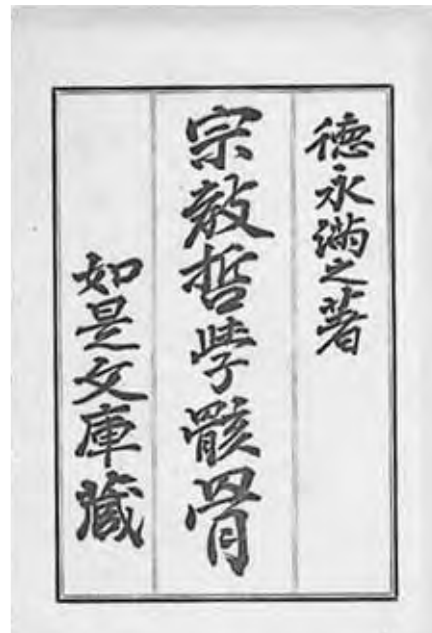 德永滿之著
宗教哲學骸骨
如是文庫藏